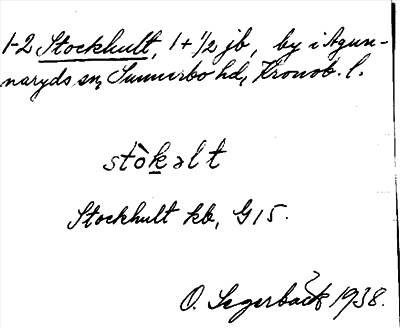 1-2 Stockhult, 1 + 1/2 jb, by i Agun-
naryds sn, Sunnerbo hd, Kronob. l.
stòkəlt
Stockhult kb, G15.
O. Segerbäck 1938.